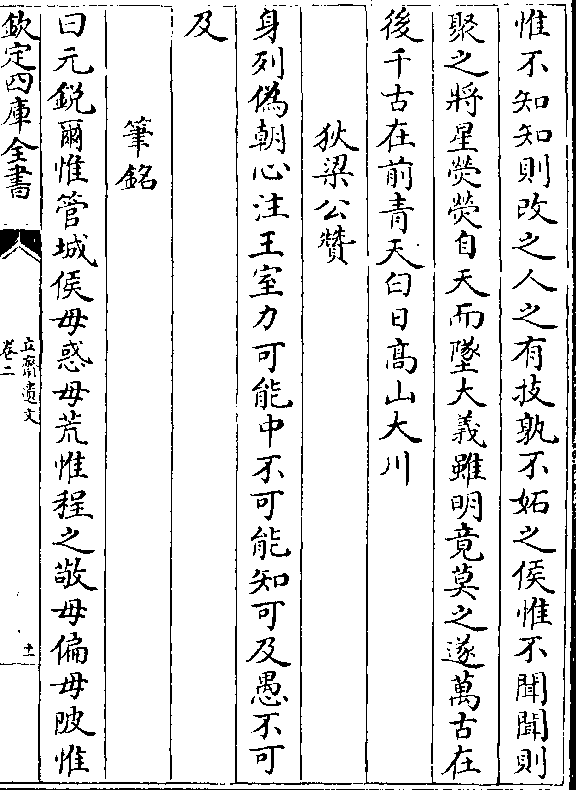 惟不知知則改之人之有技孰不妬之侯惟不聞聞則
聚之將星熒熒自天而墜大義雖明竟莫之遂萬古在
後千古在前青天白日高山大川
狄梁公贊
身列偽朝心注王室力可能中不可能知可及愚不可
及
筆銘
曰元銳爾惟管城侯毋惑毋荒惟程之敬毋偏毋陂惟
欽定四庫全書
立齋遺文
卷二
十一